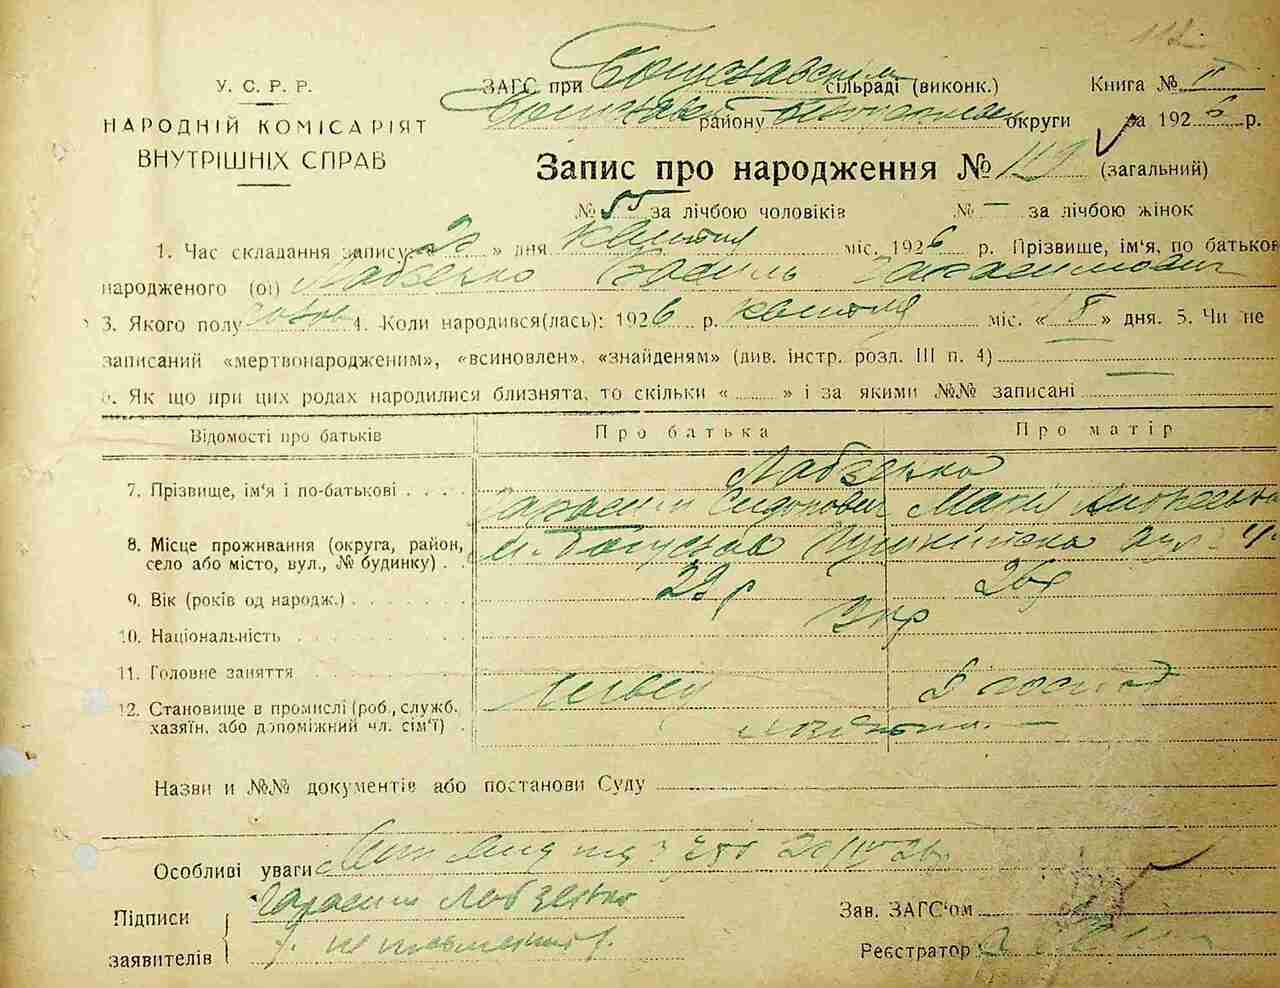 У. С. Р. Р.
НАРОДНІЙ КОМІСАРІЯТ
ВНУТРІШНІХ СПРАВ
ЗАГС при Богуславскім сільраді (виконк.) Книга № II
району округи за 1926 р.
Запис про народження № (загальний)
№ 55 за лічбою чоловіків № — за лічбою жінок
1. Час складання запису: «20» дня квітня міс. 1926 р. Прізвище, ім'я, по батькові
народженого (ої) Лабзенко Василь Гарасимович
3. Якого полу 4. Коли народився(лась): 1926 р. квітня міс. «18» дня. 5. Чи не
записаний «мертвонародженим», «всиновлен», «знайденям» (див. інстр. розд. III п. 4)
6. Як що при цих родах народилися близнята, то скільки « » і за якими №№ записані
Відомості про батьків Про батька Про матір
Лабзенко
7. Прізвище, ім'я і по-батькові Гарасим Сидорович Марія
8. Місце проживання (округа, район, село або місто, вул., № будинку) м. Богуслав Пушкінська вул.
9. Вік (років од народж.) 26р
10. Національність Укр
11. Головне заняття
12. Становище в промислі (роб., служб. хазяїн, або допоміжний чл. сім'ї)
Назви и №№ документів або постанови Суду
Особливі уваги 20/IV 26
Підписи Гарасим Лабзенко
заявителів неписьменний
Зав. ЗАГС'ом
Реєстратор